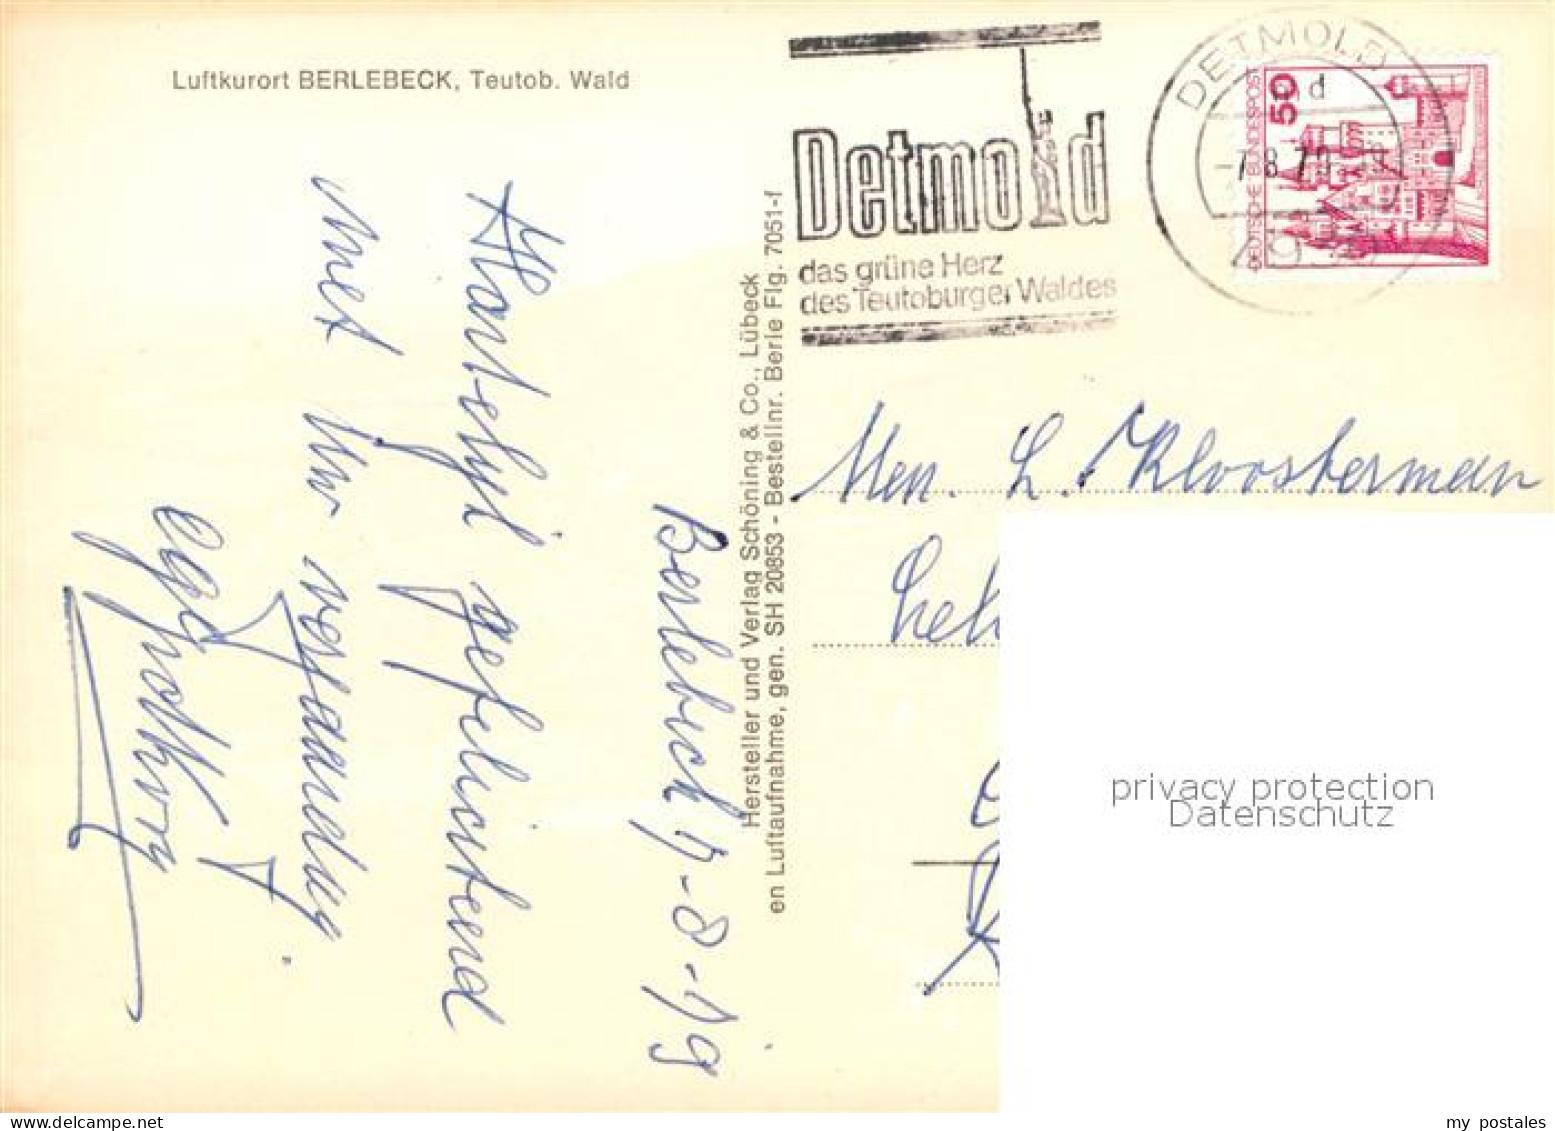 Luftkurort BERLEBECK, Teutob. Wald
Berlebeck 7-8-79
Hartelijk gefeliciteerd
met Uw verjaardag
Hersteller und Verlag Schöning & Co., Lübeck
en Luftaufnahme, gen. SH 20853 - Bestellnr. Berle Flg. 7051-f
Detmold
das grüne Herz
des Teutoburger Waldes
DETMOLD
d
-7.8.79
50
DEUTSCHE BUNDESPOST
L. Kloosterman
privacy protection
Datenschutz
delcampe.net
my postales